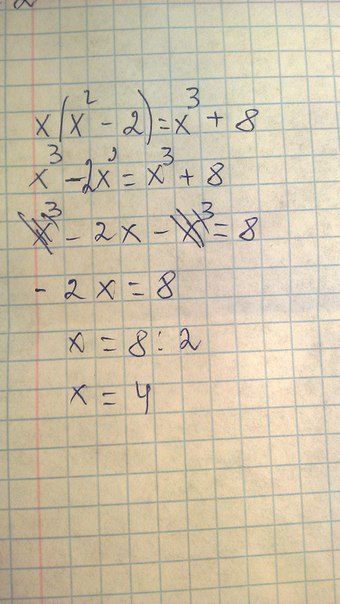 x(x² - 2) = x³ + 8
x³ - 2x = x³ + 8
x³ - 2x - x³ = 8
- 2x = 8
x = 8 : 2
x = 4